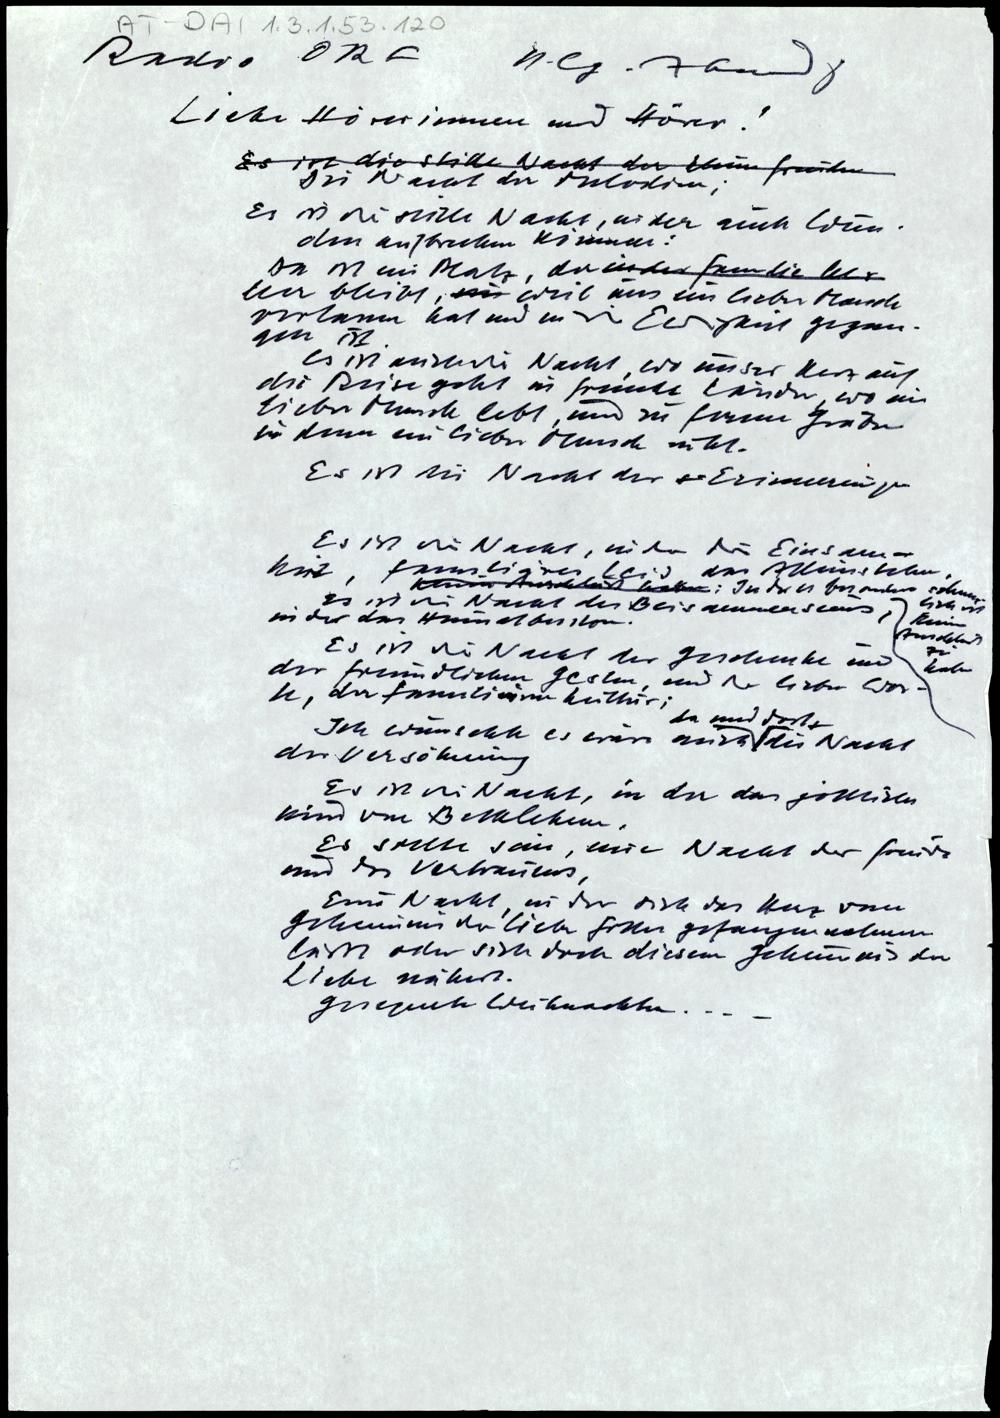 AT-DAI 1.3.1.53.120
Radio ORF Hlg. Abend
Liebe Hörerinnen und Hörer!
Es ist die stille Nacht der
Die Nacht der Melodien;
Es ist die stille Nacht, in der auch Wun-
den aufbrechen können:
Da ist ein Platz, der in der Familie
leer bleibt, weil uns ein lieber Mensch
verlassen hat und in die Ewigkeit gegan-
gen ist.
Es ist auch die Nacht, wo unser Herz auf
die Reise geht in fremde Länder, wo ein
lieber Mensch lebt, und zu fernen Gräbern
in denen ein lieber Mensch ruht.
Es ist die Nacht der Erinnerung
Es ist die Nacht, in der die Einsam-
keit, familiäres Leid das Alleinstehen,
kein Anschluß haben: In der es besonders schmerz-
lich ist
kein
Anschluß
zu
haben
Es ist die Nacht des Beisammenseins,
in der das Himmel
Es ist die Nacht der Geschenke und
der freundlichen Gesten, und der lieben Wor-
te, der familiären Kultur;
da und dort
Ich wünschte es wäre auch die Nacht
der Versöhnung
Es ist die Nacht, in der das göttliche
Kind von Bethlehem.
Es sollte sein, eine Nacht der Freude
und des Vertrauens,
Eine Nacht, in der sich das Herz vom
Geheimnis der Liebe Gottes gefangen nehmen
läßt oder sich doch diesem Geheimnis der
Liebe nähert.
Gesegnete Weihnachten. . . .